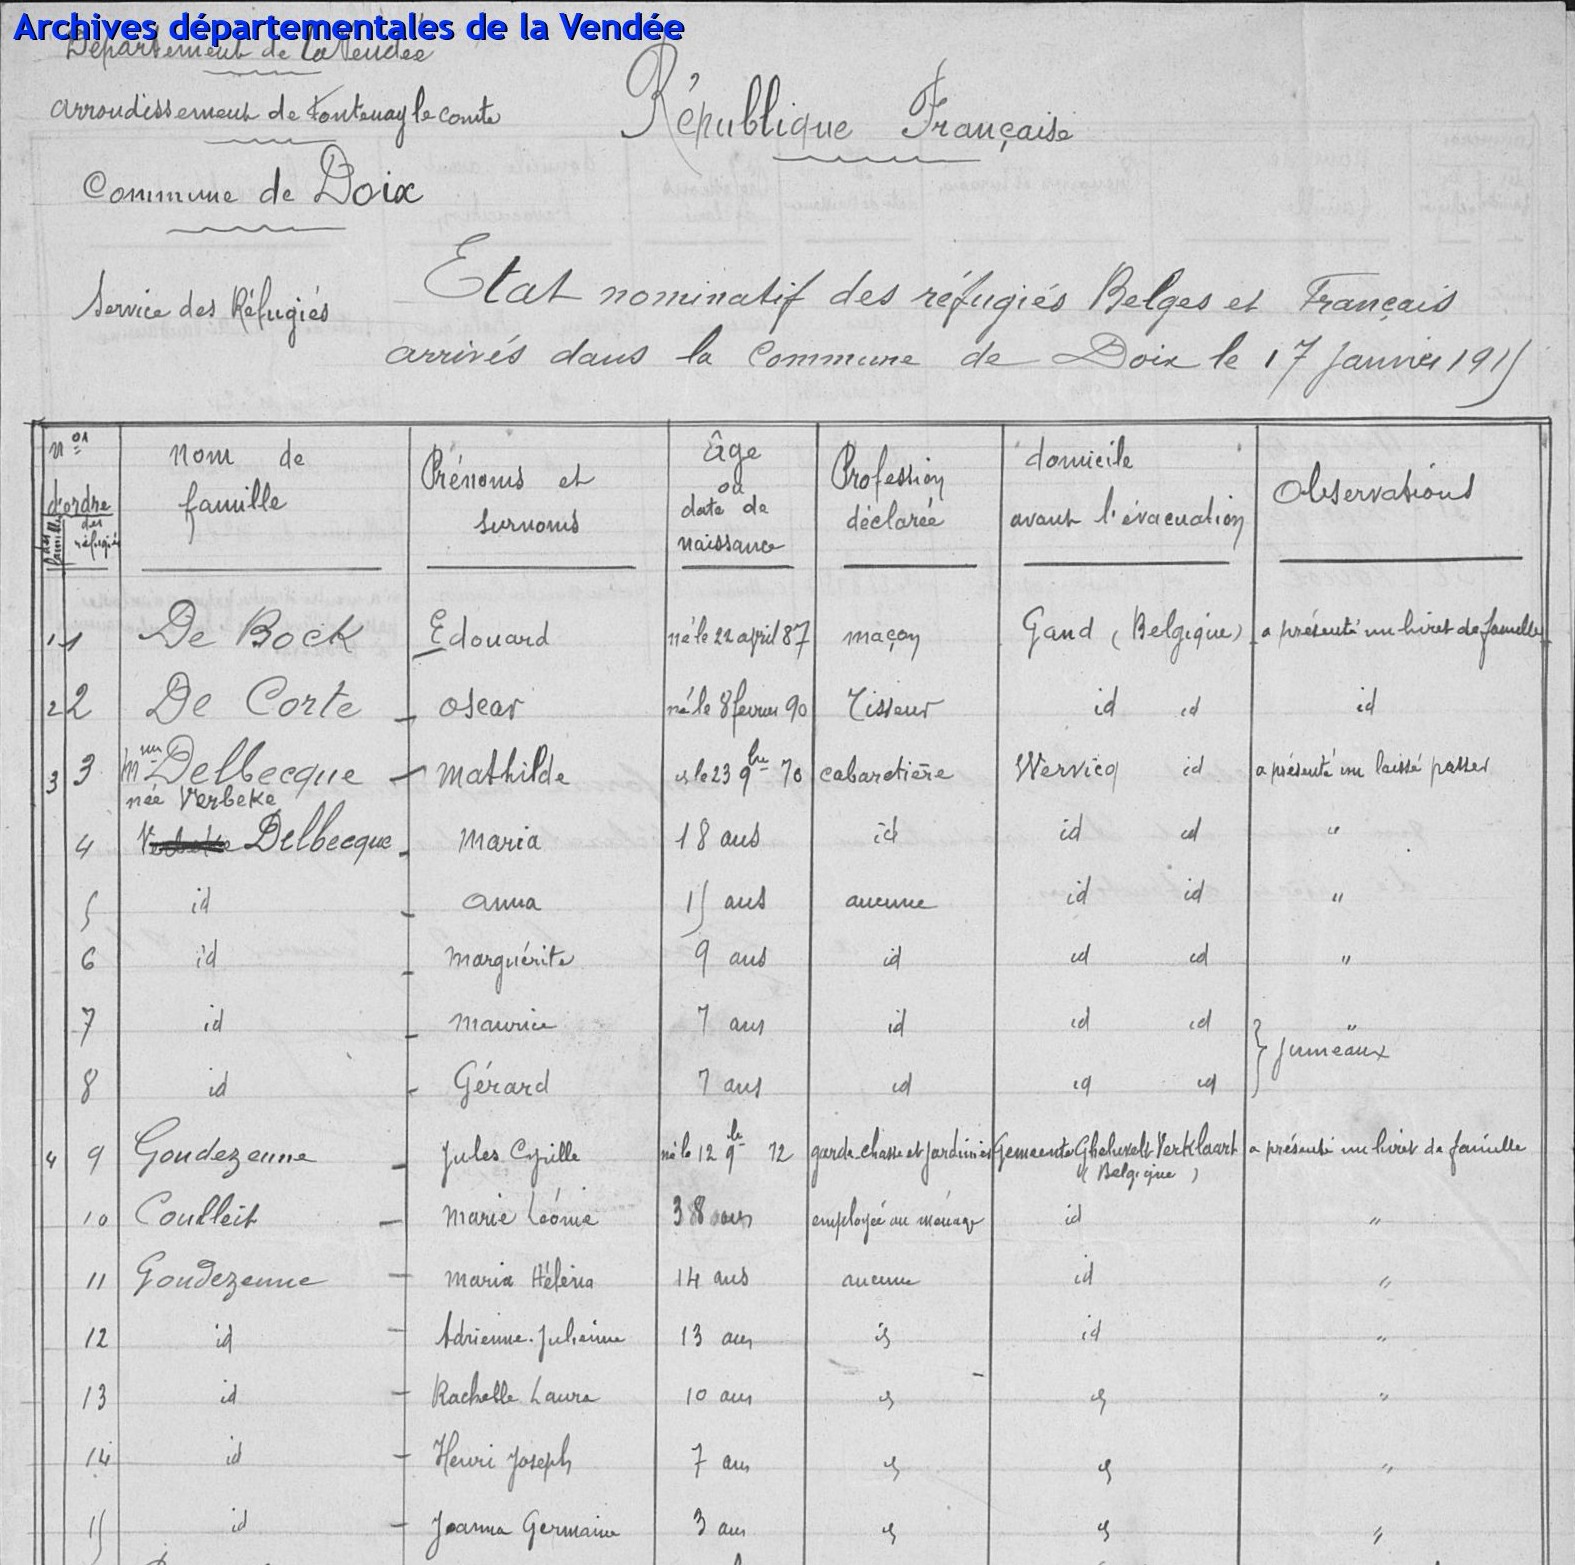 Archives départementales de la Vendée
Département de la Vendée
arrondissement de Fontenay le comte
République Française
Commune de Doix
Service des Réfugiés
Etat nominatif des réfugiés Belges et Français
arrivés dans la Commune de Doix le 17 Janvier 1915
Nos d'ordre des familles des réfugiés nom de famille Prénoms et surnoms âge ou date de naissance Profession déclarée domicile avant l'évacuation Observations
1 1 De Bock Edouard né le 22 april 87 maçon Gand (Belgique) a présenté un livret de famille
2 2 De Corte oscar né le 8 février 90 Tisseur id id id
3 3 Mme Delbecque mathilde le 23 9bre 70 cabaretière Wervicq id a présenté un laissé passer
née Verbeke
4 Verbeke Delbecque maria 18 ans id id id "
5 id anna 15 ans aucune id id "
6 id marguérite 9 ans id id id "
7 id maurice 7 ans id id id "
} jumeaux
8 id Gérard 7 ans id id id
4 9 Goudezenne Jules Cyrille né le 12 9bre 72 garde-chasse et jardinier Gemeente Gheluvelt Verklaart a présenté un livret de famille
(Belgique)
10 Marie Léonie 38 ans employée au ménage id "
11 Goudezenne maria Héléna 14 ans aucune id "
12 id Adrienne-Julienne 13 ans id id "
13 id Rachelle Laure 10 ans id id "
14 id Henri Joseph 7 ans id id "
15 id Joanna Germaine 3 ans id id "